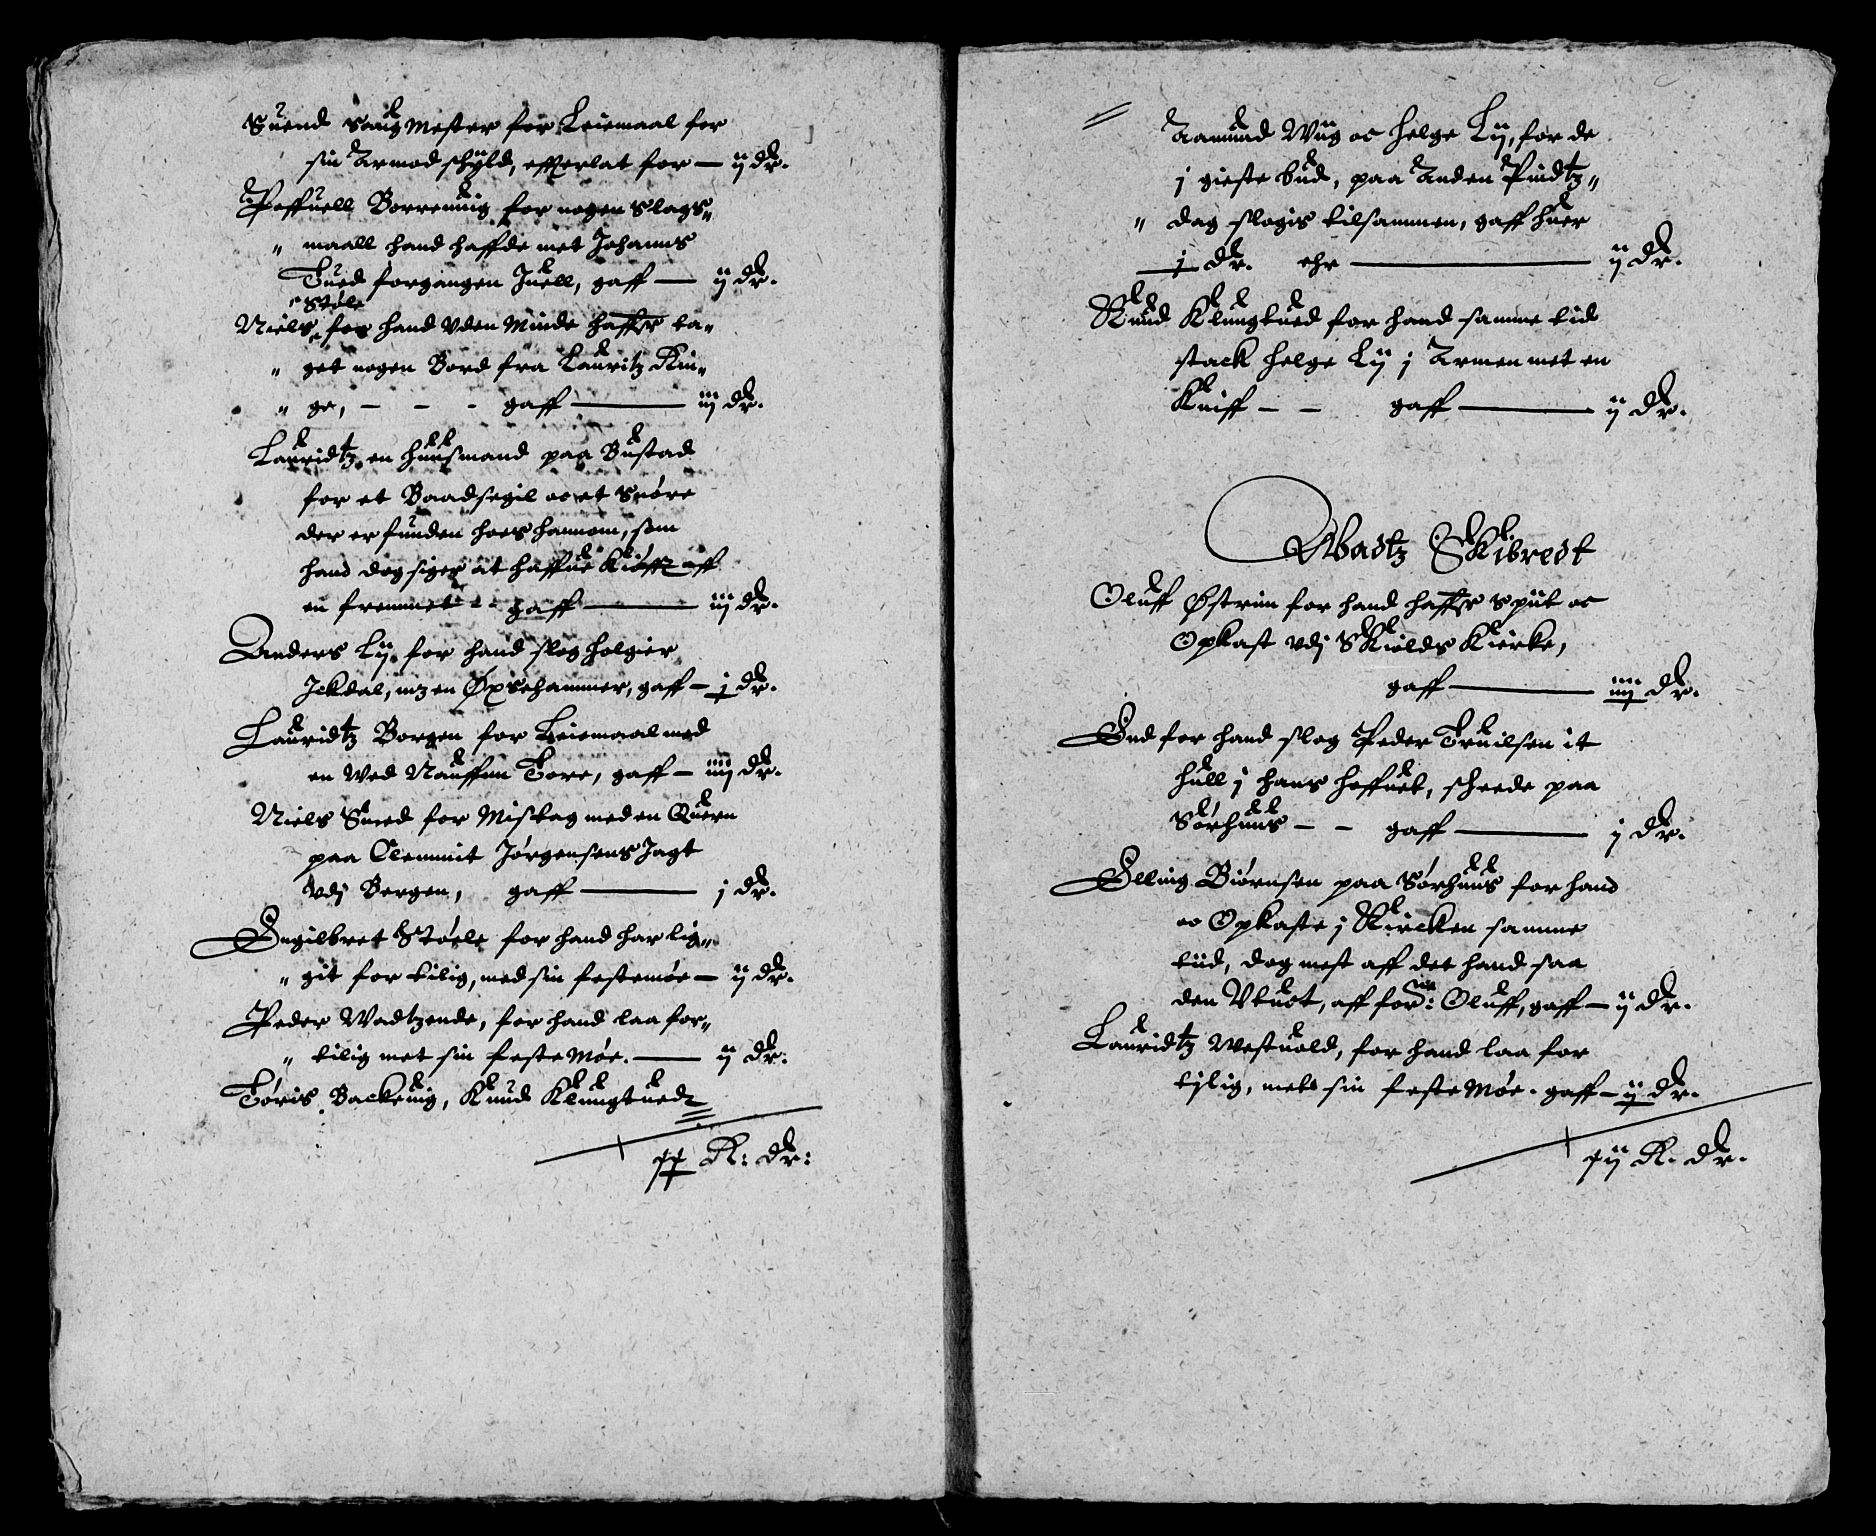 Suend Saugmester for Leiemaal for
sin Armod schyld, effterlat for — ij dr.
Poffuell Borrenuig for nogen Slags„
„ maall hand haffde met Johanns
Tued forgangen Juell, gaff — ij dr.
Støle
Niels for hand Vden Minde haffr ta„
„ get nogen Bord fra Lauritz Rin„
„ ge, - - - gaff — iij dr.
Lauridtz en huusmand paa Bustad
for et Baadsegil oc et Snøre
der er funden hoes hannom, som
hand dog siger at haffue Kiøfft aff
en fremmet - - gaff — iij dr.
Anders Lij for hand slog Holgier
Jckdal, mz en Øxsehammer, gaff — j dr.
Lauridtz Borgen for Leiemaal med
en Wed Nauffnn Tore, gaff — iiij dr.
Niels Smed for Mistag med en Quern
paa Clemmit Jørgensens Jagt
vdj Bergen, gaff — j dr.
Engilbret Støele for hand har lig„
„ git for tilig, med sin festemøe — ij dr.
Peder Wadtzende, for hand laa for„
„ tilig met sin feste Møe. — ij dr.
Tøris Backeuig, Knud Klungtuedt
xx R: dr:
Aamund Wiig oc Helge Lij, for de
j gieste bud, paa Anden Pindtz„
„ dag slogis tilsammen, gaff huer
j dr. ehr — ij dr.
Knud Klungtued for hand samme tid
stack Helge Lij j Armen met en
Kniff - - gaff — ij dr.
Wadtz Skibredt
Oluff Østrim for hand haffr Spiit oc
Opkast vdj Skiolds Kierke,
gaff — iiij dr.
End for hand slog Peder Truilsen it
hull j hans hoffuet, scheede paa
Sørhuus - - gaff — j dr.
Elling Biørnsen paa Sørhuus for hand
oc Opkaste j Kircken samme
tiid, dog mest aff det hand saa
den Vtuct, aff forne: Oluff, gaff — ij dr.
Lauridtz Westuold, for hand laa for
tilig, mett sin feste Møe. gaff — ij dr.
xij R. dr.